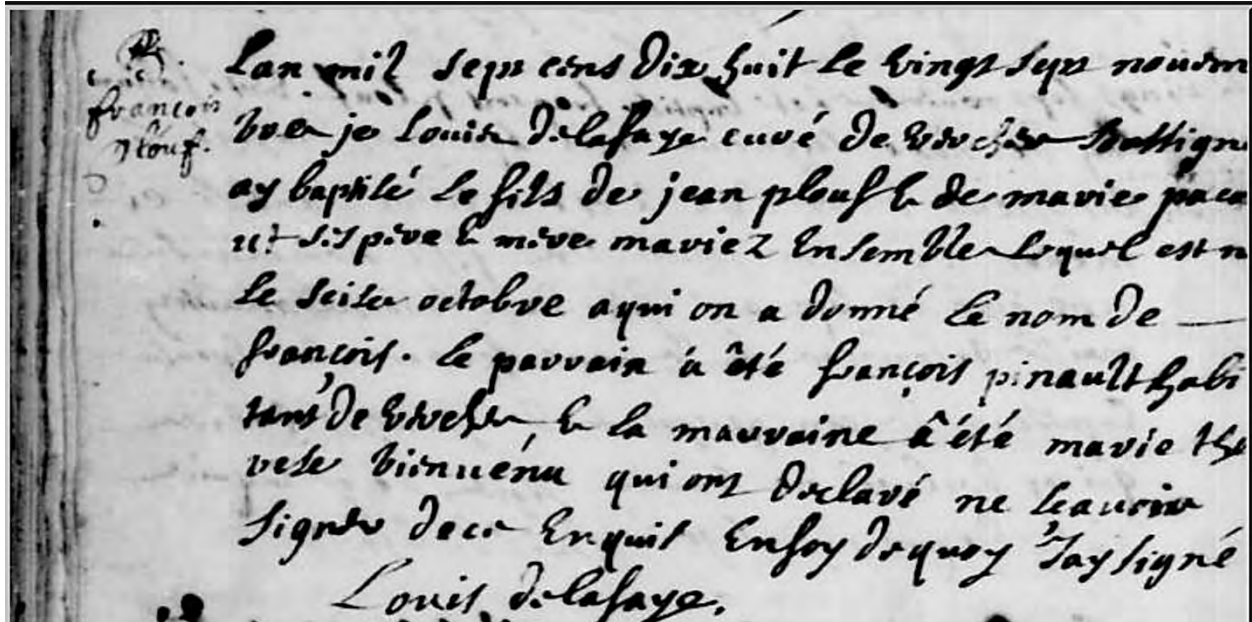 françois
plouf.
Lan mil sept cens dix huit le vingt sept novem
bre je Louis delafaye curé de
ay baptisé le fils de jean plouf & de marie paca
ut ses pere & mere mariez Ensemble lequel est n
le seise octobre a qui on a donné le nom de —
françois. le parrain a été françois pinault habi
tant de & la marraine a été marie the
rese bienuénu qui ont declaré ne scauoir
signer de ce Enquis En foy de quoy J'ay signé
Louis delafaye.